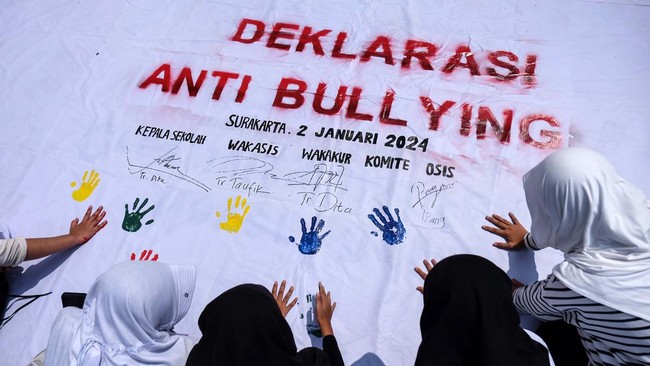 DEKLARASI
ANTI BULLYING
SURAKARTA. 2 JANUARI 2024
KEPALA SEKOLAH WAKASIS WAKAKUR KOMITE OSIS
Tr Taufik Tr Dita